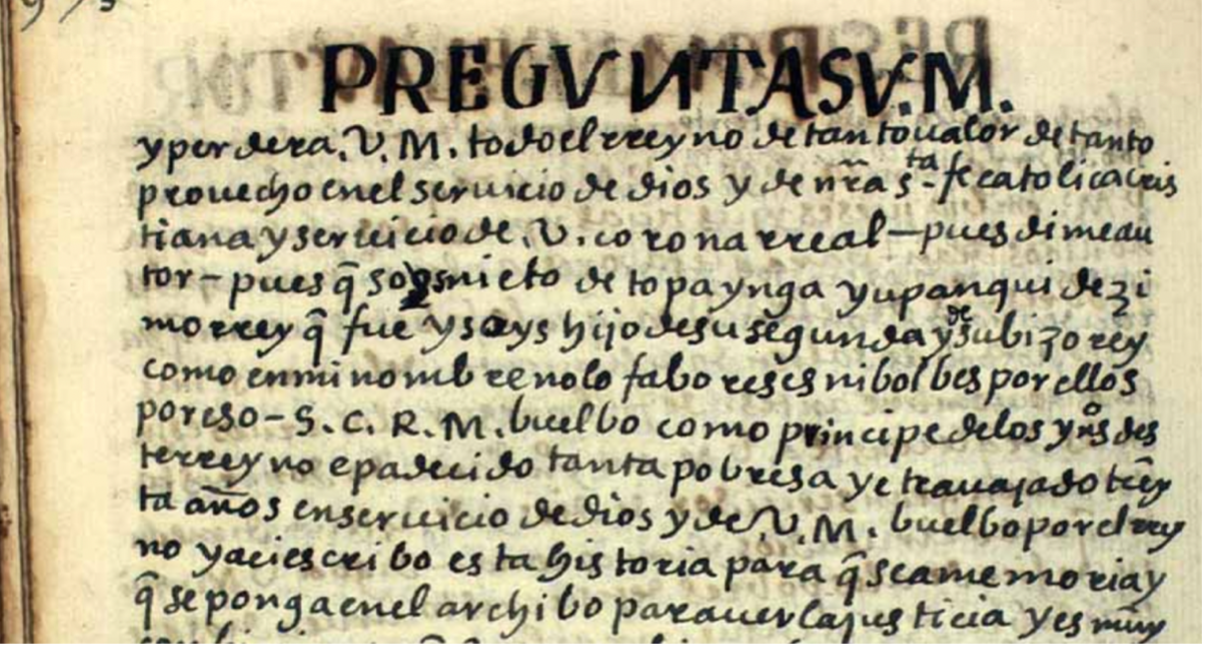 PREGVNTASV.M.
y perdera. V. M. todo el rreyno de tanto ualor de tanto
prouecho en el seruicio de dios y de nr̃a s.ta fe catolica cris
tiana y seruicio de. V. corona rreal – pues dime au
tor – pues q̃ soys nieto de topa ynga yupanqui dezi
mo rrey q̃ fue y soys hijo de su segunda y de su bizorey
como en mi nombre no lo faboreses ni bolbes por ellos
por eso – S. C. R. M. buelbo como principe de los yos des
te rreyno e padecido tanta pobresa y e trauajado treyn
ta años en seruicio de dios y de. V. M. buelbo por el rrey
no y aci escribo esta historia para q̃ sea memoria y
q̃ se ponga en el archibo para uer la justicia y es muy